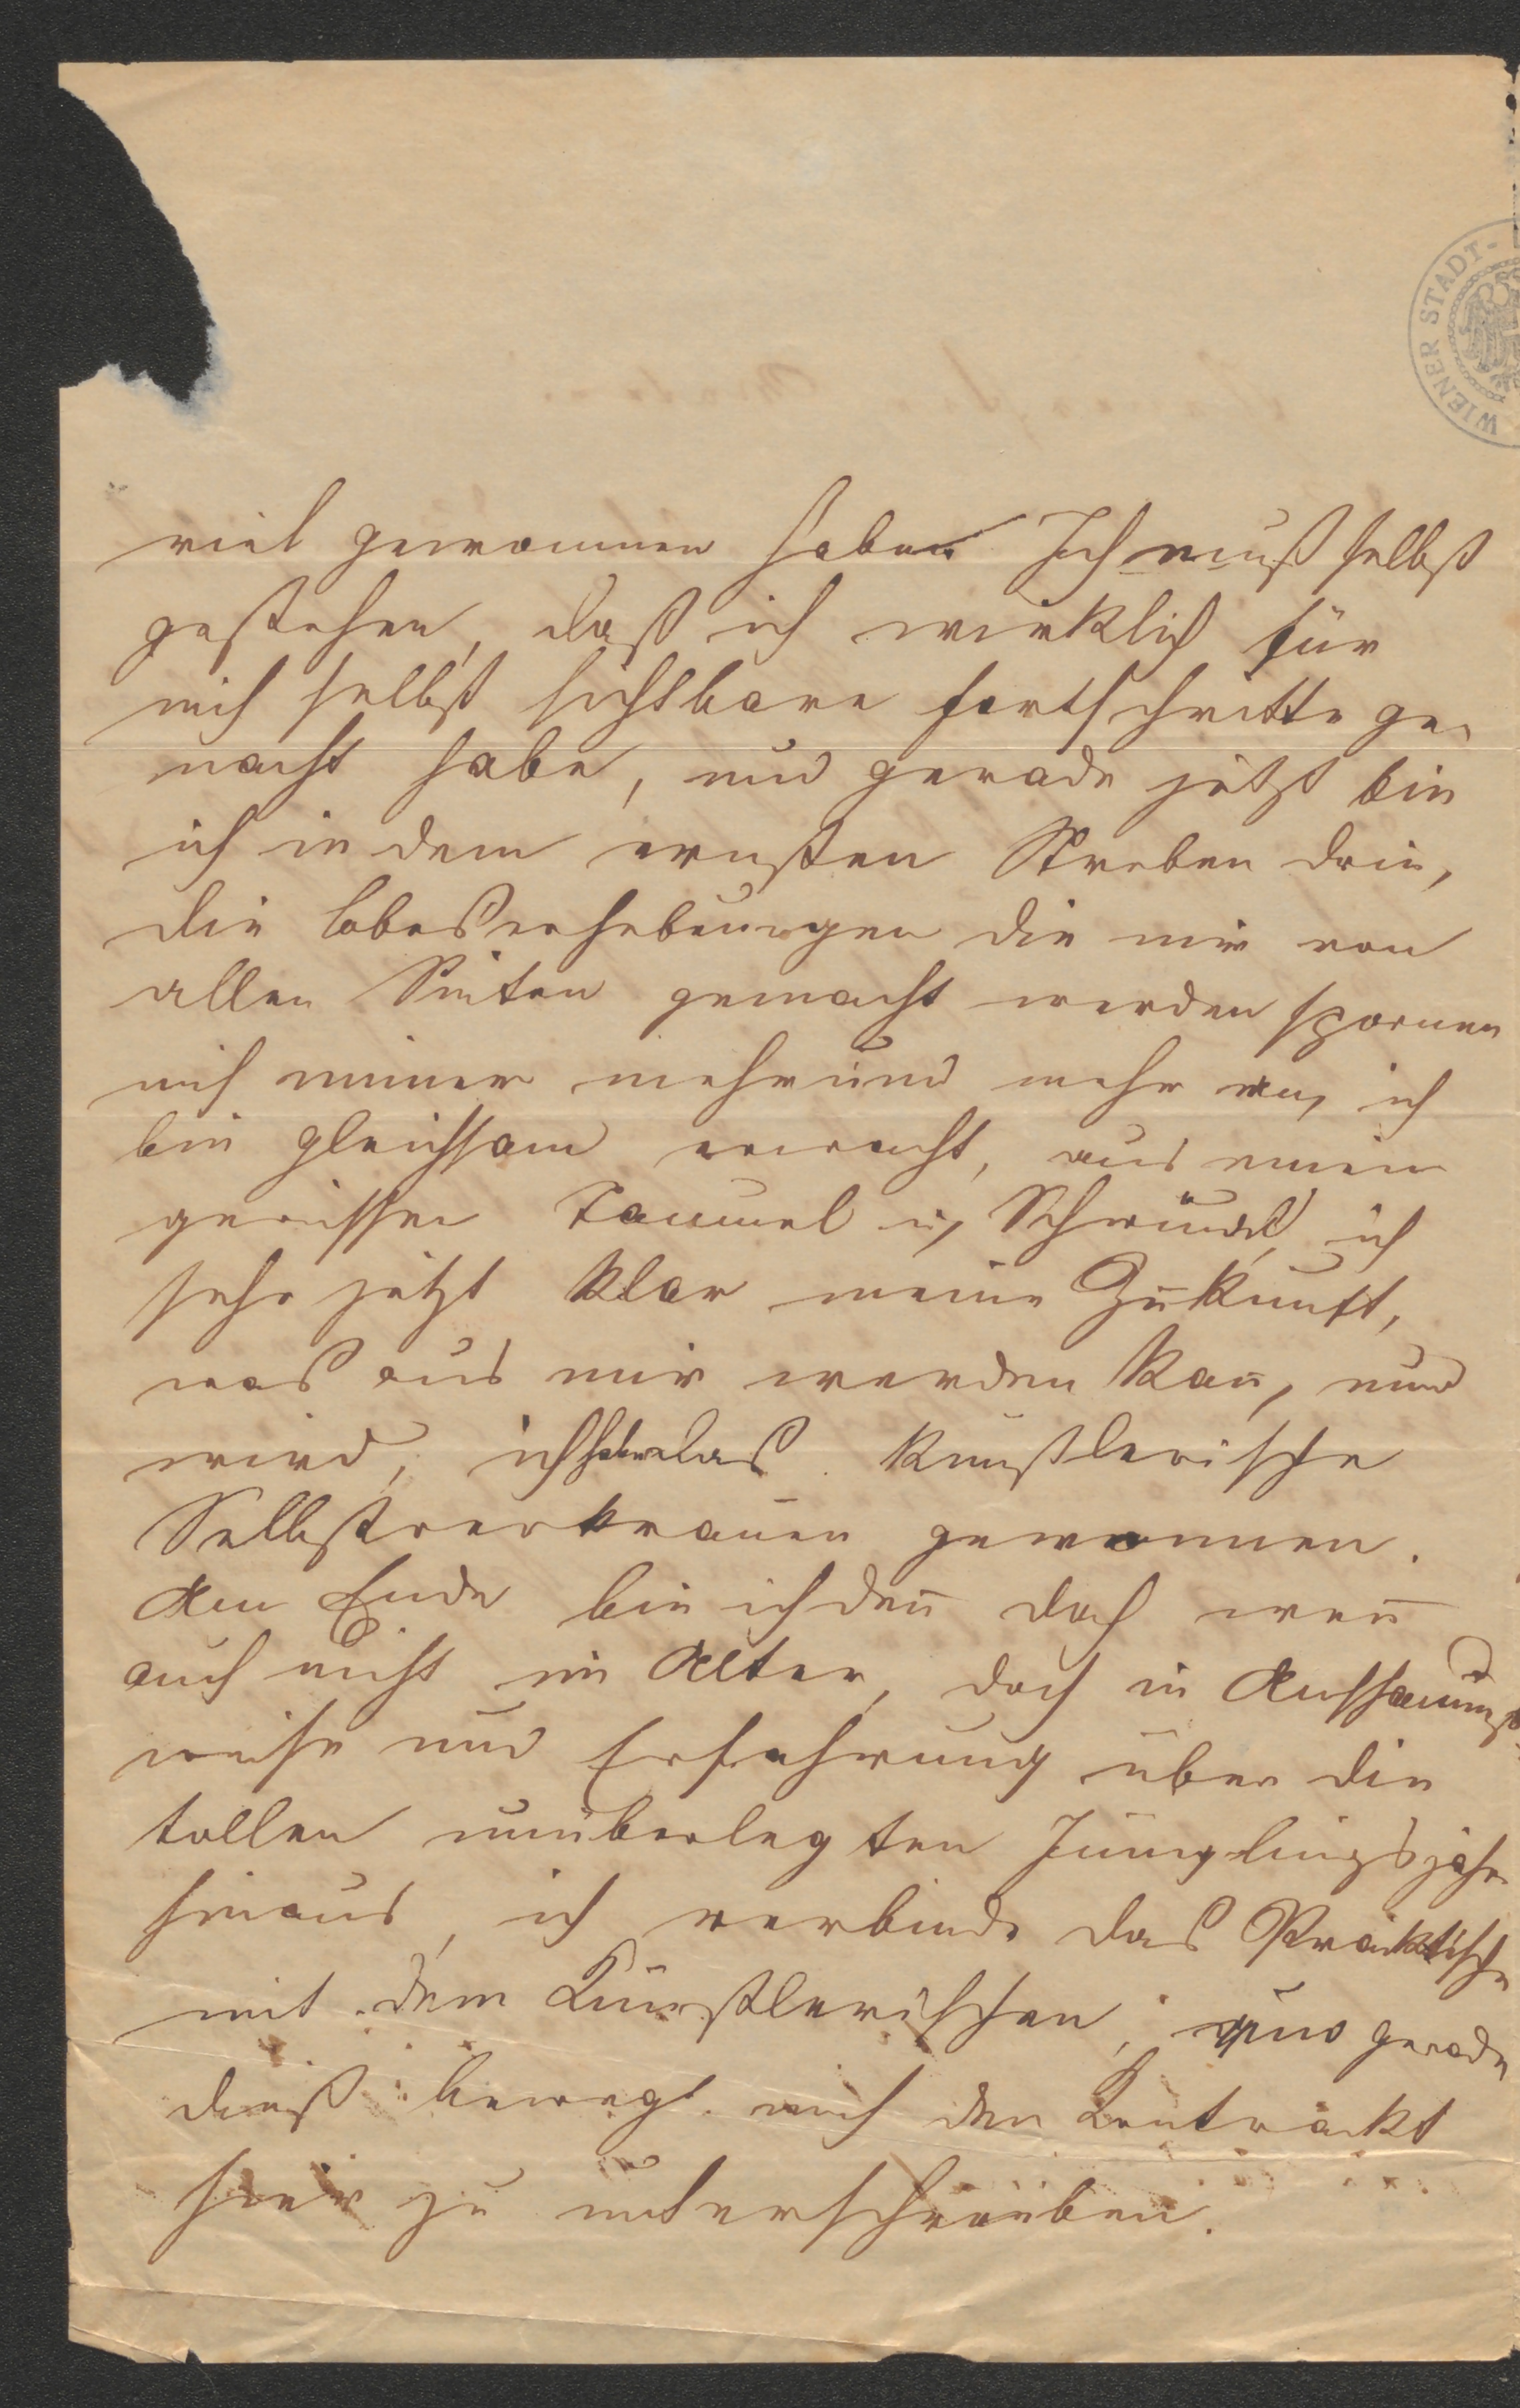 WIENER STADT-
viel gewonnen haben Ich muß selbst
gestehen, daß ich wirklich für
mich selbst sichtbare Fortschritte ge-
macht habe, und gerade jetzt bin
ich in dem ernsten Streben drin,
die Lobeserhebungen die mir von
allen Seiten gemacht werden spornen
mich immer mehr und mehr an, ich
bin gleichsam erwacht, aus einem
gewissen Taumel u, Schwindel, ich
sehe jetzt klar meine Zukunft,
was aus mir werden kan̅, und
wird, ich habe das künstlerische
Selbstvertrauen gewonnen.
Am Ende bin ich den̅ doch wen̅
auch nicht im Alter, doch in Anschauungs-
weise und Erfahrung über die
tollen unüberlegten Jünglingsjahre
hinaus, ich verbinde das Praktische
mit dem Künstlerischen, und gerade
dieß bewegt mich den Contrakt
hier zu unterschreiben.